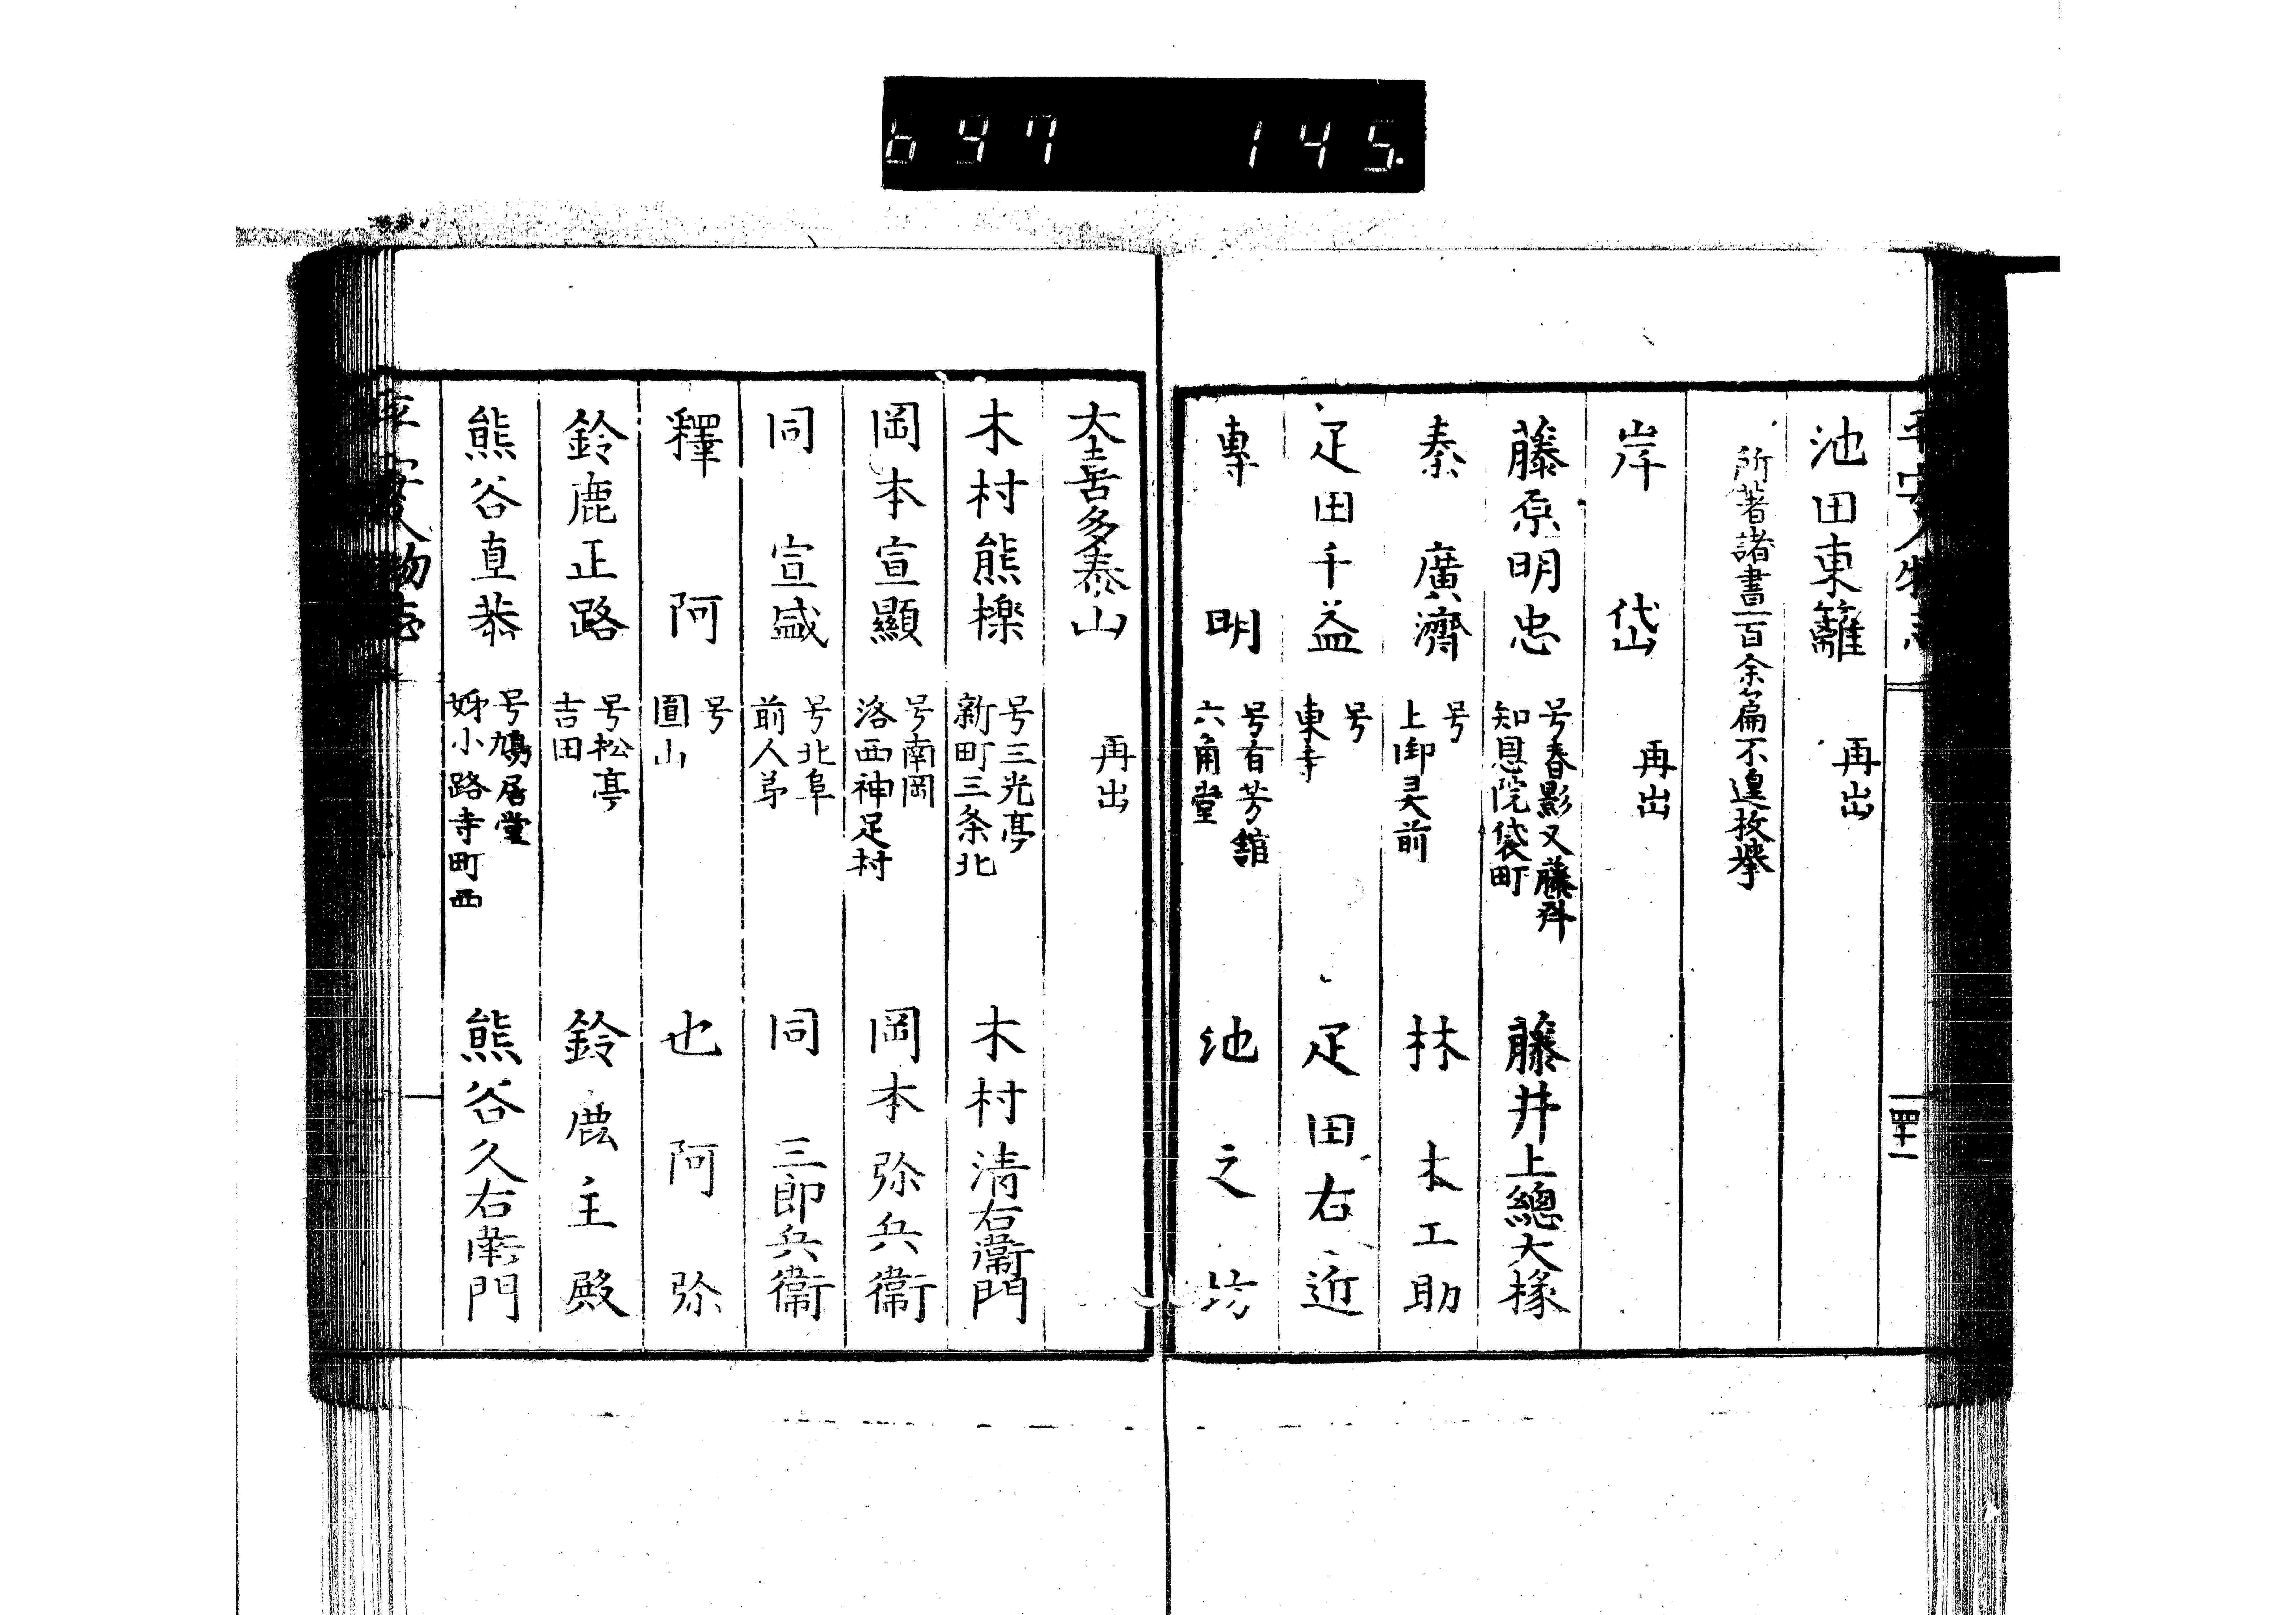 697 145.
平安人物志
四十一
池田東籬 再出
所著諸書一百余扁不遑枚挙
岸 岱 再出
藤原明忠 号春影又藤舛 知恩院袋町 藤井上總大椽
秦 廣濟 号 上御灵前 林 木工助
疋田千益 号 東寺 疋田右近
專 明 号有芳館 六角堂 池之坊
大喜多泰山 再出
木村熊檪 号三光亭 新町三条北 木村清右衞門
岡本宣顯 号南岡 洛西神足村 岡本弥兵衞
同 宣盛 号北阜 前人弟 同 三郎兵衞
釋 阿 号 圓山 也阿弥
鈴鹿正路 号松亭 吉田 鈴鹿主殿
熊谷直恭 号鳩居堂 姊小路寺町西 熊谷久右衞門
平安人物志